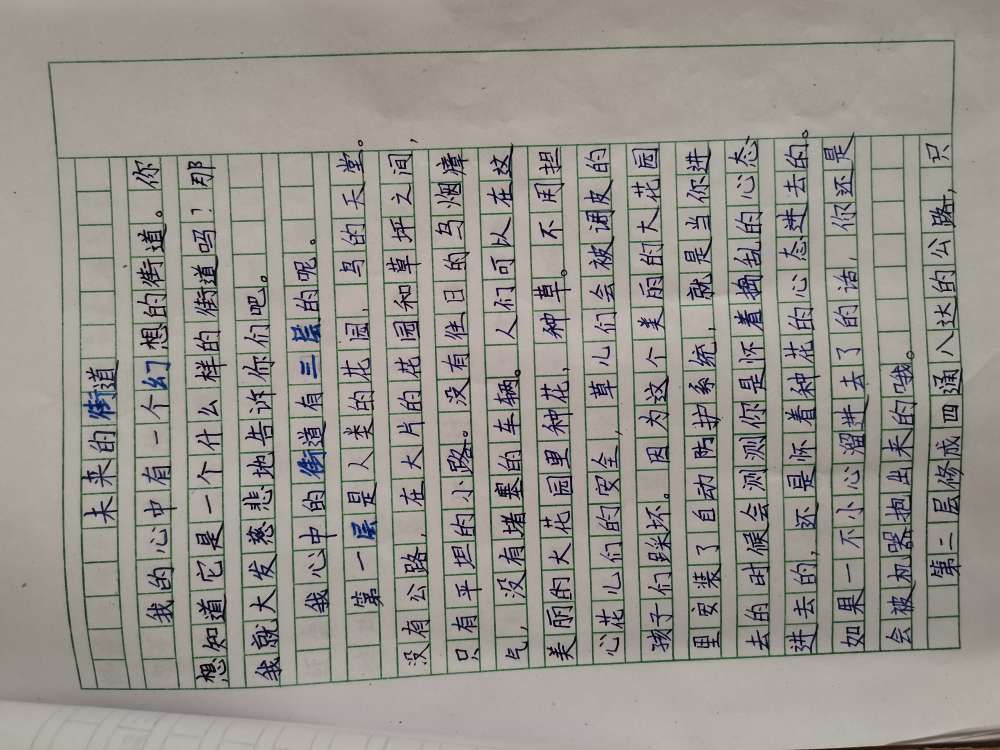 未来的街道
我的心中有一个幻想的街道。你
想知道它是一个什么样的街道吗？那
我就大发慈悲地告诉你们吧。
我心中的街道有三层的呢。
第一层是人类的花园，鸟的天堂。
没有公路，在大片的花园和草坪之间，
只有平坦的小路。没有往日的乌烟瘴
气，没有堵塞的车辆。人们可以在这
美丽的大花园里种花，种草。不用担
心花儿们的安全，草儿们会被调皮的
孩子们踩坏。因为这个美丽的大花园
里安装了自动防护系统，就是当你进
去的时候会测测你是怀着捣乱的心态
进去的，还是怀着种花的心态进去的。
如果一不小心溜进去了的话，你还是
会被机器抱出来的哦。
第二层修成四通八达的公路，只